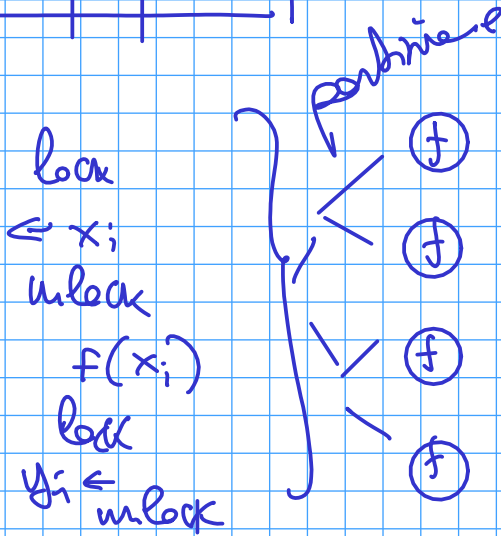 lock
← xi
unlock
f(xi)
lock
yi ←
unlock
f
f
f
f